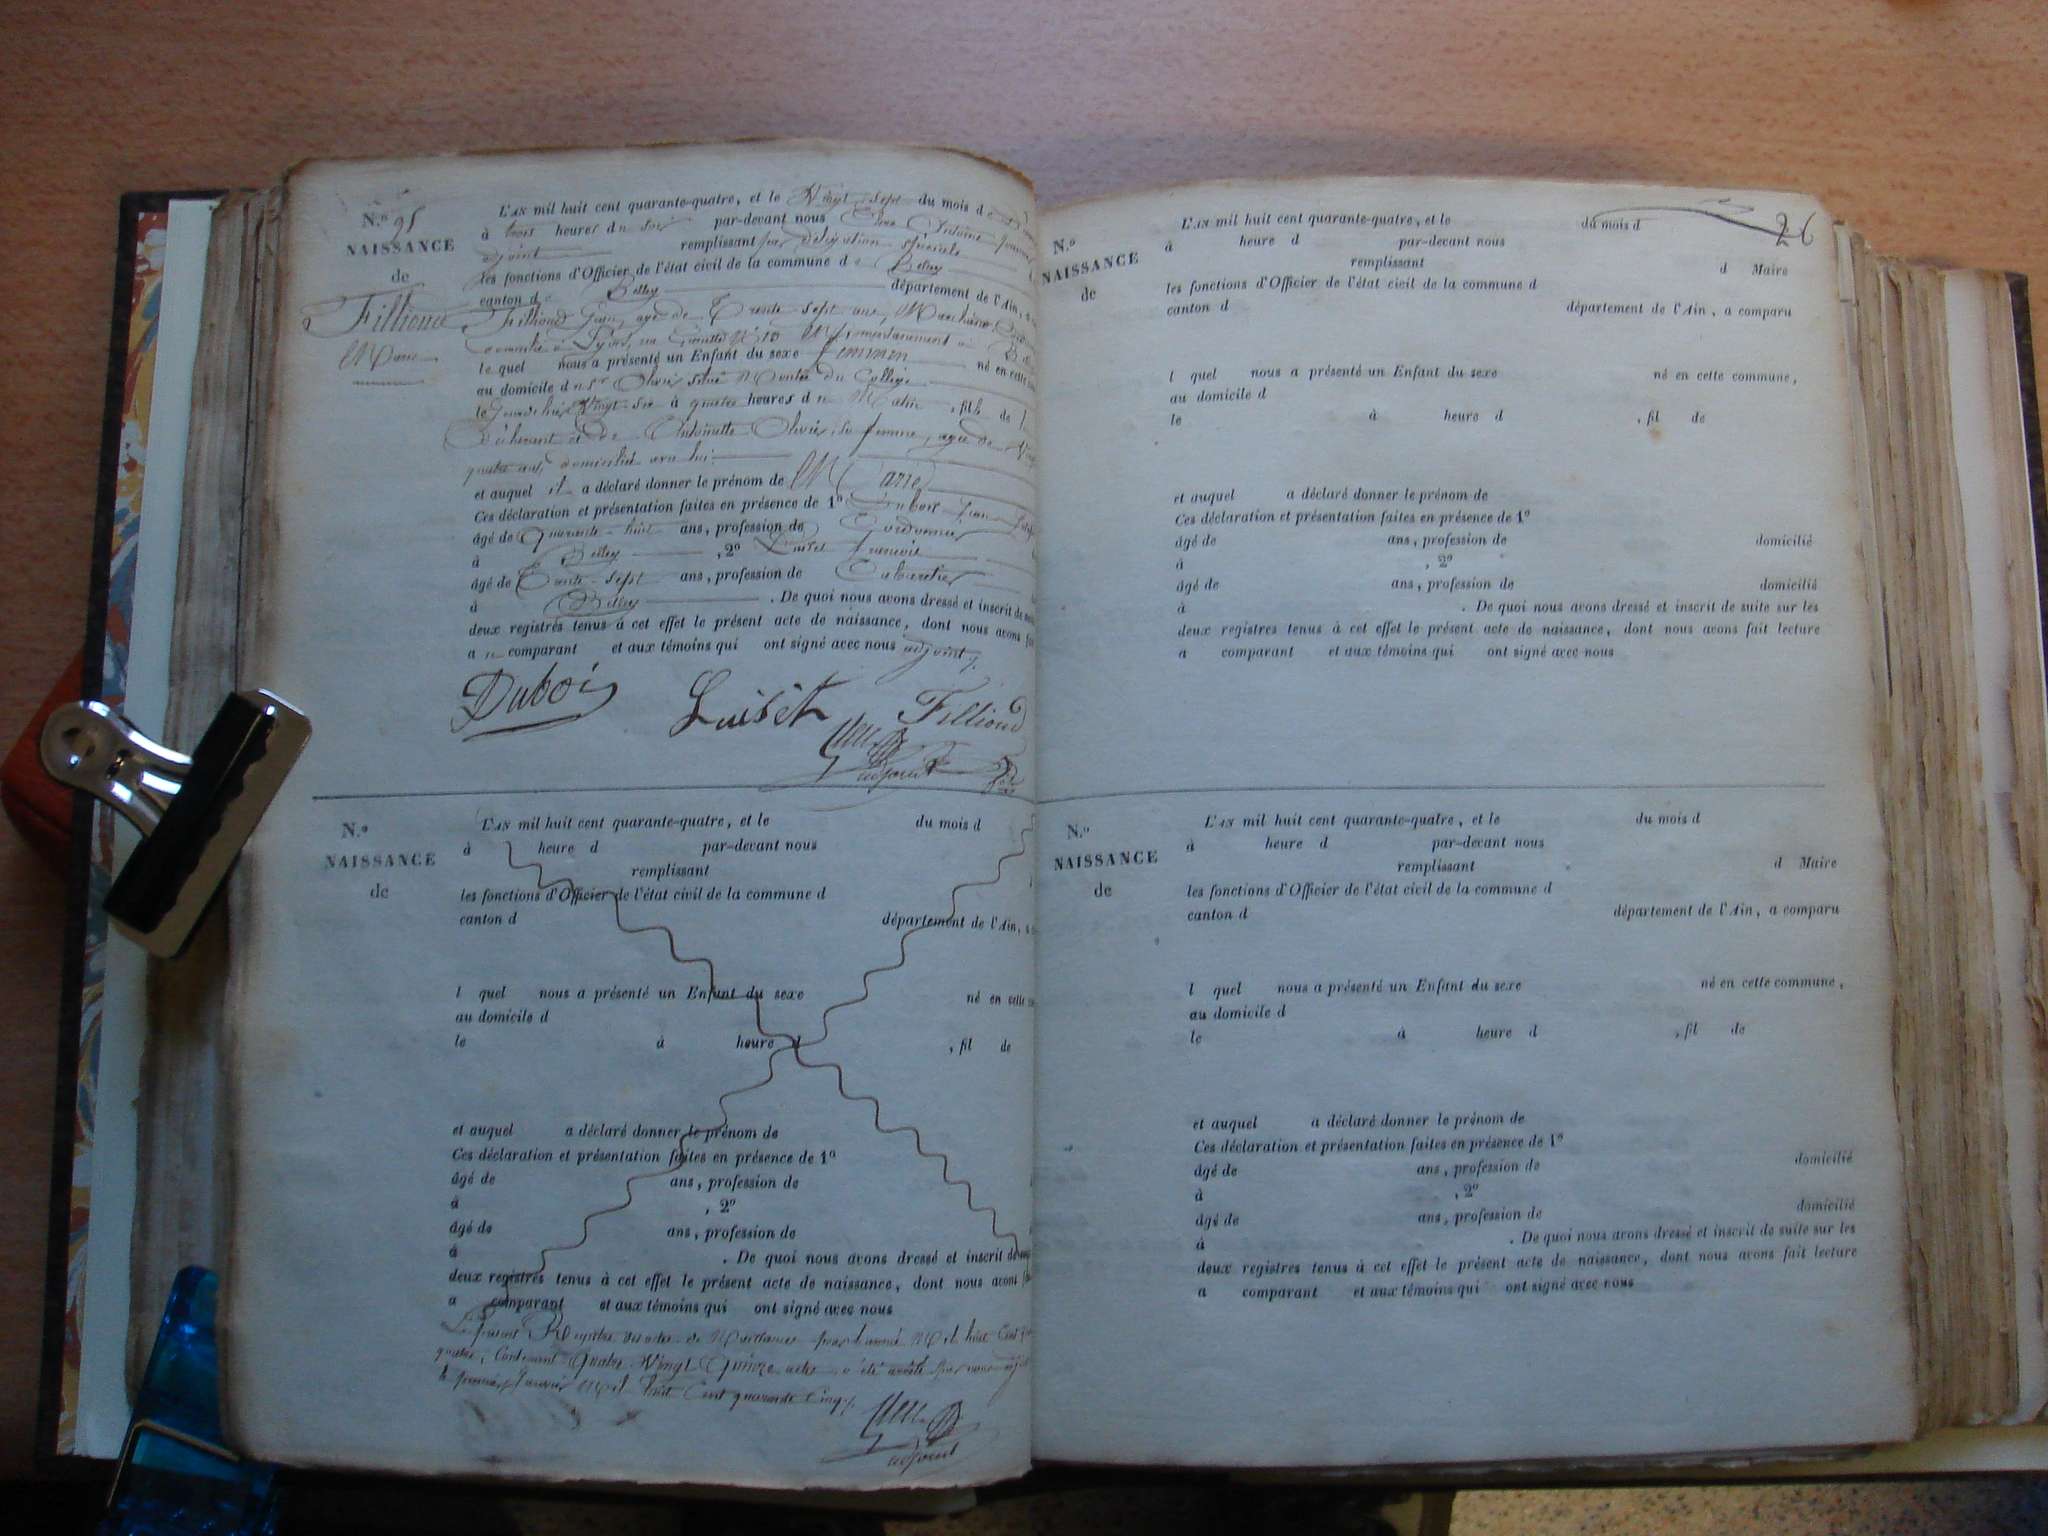 N.º 95
NAISSANCE
de
Filliond
Marie
L'AN mil huit cent quarante-quatre, et le Vingt-sept du mois d
à trois heures du soir par-devant nous Antoine
adjoint remplissant par délégation spéciale
les fonctions d'Officier de l'état civil de la commune de Belley
canton de Belley département de l'Ain, a
Filliond Jean, agé de Trente sept ans, Marchand
domicilié à Lyon, rue N.º 10 momentanément à
le quel nous a présenté un Enfant du sexe féminin né en cette
au domicile du sr Olivier situé Montée du Collège
le jourd'hier Vingt-six à quatre heures du Matin, fille de
Déclarant et de Antoinette Olivier, sa femme, agée de
quatre ans, domiciliée avec lui
et auquel il a déclaré donner le prénom de Marie
Ces déclaration et présentation faites en présence de 1º Dubois Jean
âgé de Quarante-huit ans, profession de Cordonnier
à Belley, 2º Luiset françois
âgé de Trente-sept ans, profession de Cabaretier
à Belley. De quoi nous avons dressé et inscrit de
deux registres tenus à cet effet le présent acte de naissance, dont nous avons
au comparant et aux témoins qui ont signé avec nous adjoint
Dubois Luiset Filliond
adjoint
N.º
NAISSANCE
de
L'AN mil huit cent quarante-quatre, et le du mois d
à heure d par-devant nous
remplissant
les fonctions d'Officier de l'état civil de la commune d
canton d département de l'Ain,
l quel nous a présenté un Enfant du sexe né en cette
au domicile d
le à heure d , fil de
et auquel a déclaré donner le prénom de
Ces déclaration et présentation faites en présence de 1º
âgé de ans, profession de
à , 2º
âgé de ans, profession de
à . De quoi nous avons dressé et inscrit de
deux registres tenus à cet effet le présent acte de naissance, dont nous avons
a comparant et aux témoins qui ont signé avec nous
Le présent Registre des actes de Naissances pour l'année Mil huit Cent
quatre, Contenant Quatre Vingt Quinze actes a été arrêté par nous adjoint
le premier Janvier Mil huit Cent quarante Cinq
adjoint
26
N.º
NAISSANCE
de
L'AN mil huit cent quarante-quatre, et le du mois d
à heure d par-devant nous
remplissant d Maire
les fonctions d'Officier de l'état civil de la commune d
canton d département de l'Ain, a comparu
l quel nous a présenté un Enfant du sexe né en cette commune,
au domicile d
le à heure d , fil de
et auquel a déclaré donner le prénom de
Ces déclaration et présentation faites en présence de 1º
âgé de ans, profession de domicilié
à , 2º
âgé de ans, profession de domicilié
à . De quoi nous avons dressé et inscrit de suite sur les
deux registres tenus à cet effet le présent acte de naissance, dont nous avons fait lecture
a comparant et aux témoins qui ont signé avec nous
N.º
NAISSANCE
de
L'AN mil huit cent quarante-quatre, et le du mois d
à heure d par-devant nous
remplissant d Maire
les fonctions d'Officier de l'état civil de la commune d
canton d département de l'Ain, a comparu
l quel nous a présenté un Enfant du sexe né en cette commune,
au domicile d
le à heure d , fil de
et auquel a déclaré donner le prénom de
Ces déclaration et présentation faites en présence de 1º
âgé de ans, profession de domicilié
à , 2º
âgé de ans, profession de domicilié
à . De quoi nous avons dressé et inscrit de suite sur les
deux registres tenus à cet effet le présent acte de naissance, dont nous avons fait lecture
a comparant et aux témoins qui ont signé avec nous